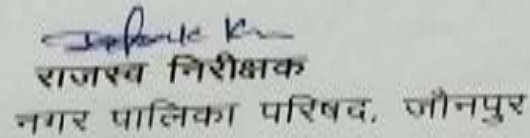 राजस्व निरीक्षक
नगर पालिका परिषद, जौनपुर